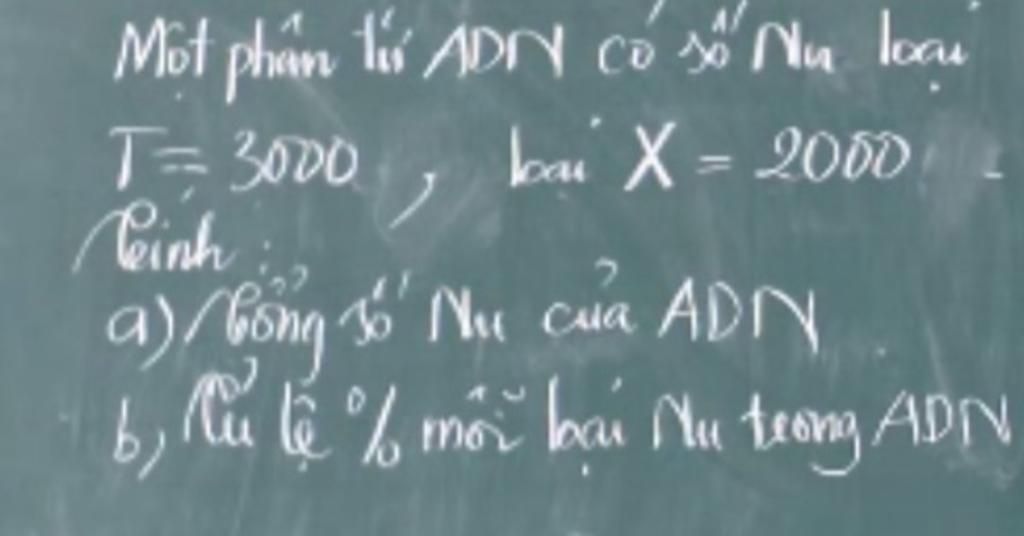 Một phân tử ADN có số Nu loại
T = 3000, loại X = 2000.
Tính:
a) Tổng số Nu của ADN.
b, Tỉ lệ % mỗi loại Nu trong ADN